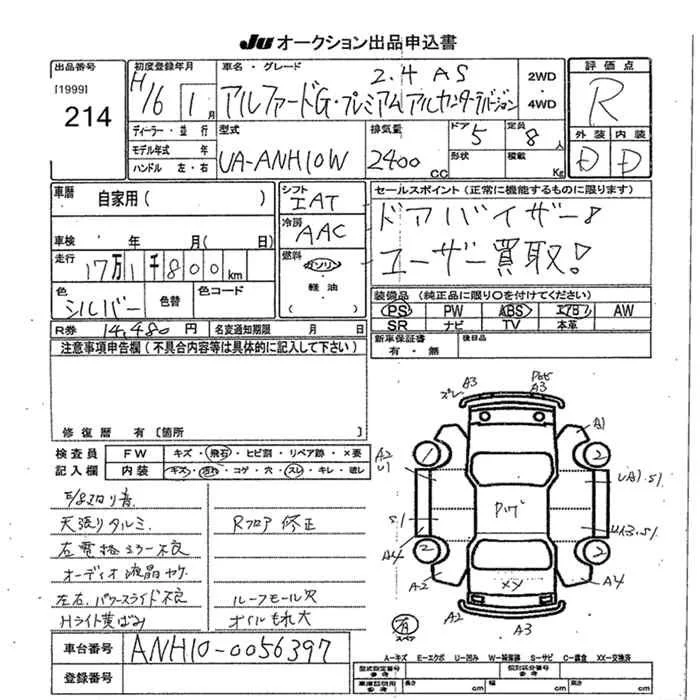 Ju オークション出品申込書
出品番号
[1999]
214
初度登録年月
H16 1月
ディーラー・並行
モデル年式 年
ハンドル 左・右
車名・グレード
2.4 AS
アルファードG・プレミアムアルカンターラバージョン
2WD
・
4WD
型式
UA-ANH10W
排気量
2400 CC
ドア 5
形状
定員 8人
積載 Kg
評価点
R
外装 内装
D D
車歴 自家用( )
車検 年 月( 日)
走行 17万1千800km
色 シルバー
色替
色コード
シフト
IAT
冷房
AAC
燃料
ガソリン
・
軽油
・
( )
セールスポイント(正常に機能するものに限ります)
ドアバイザー
ユーザー買取!
装備品(純正品に限り○を付けてください)
PS PW ABS エアB AW
SR ナビ TV 本革
新車保証書
有・無
後日品
R券 14,480円
名変通知期限 月 日
注意事項申告欄(不具合内容等は具体的に記入して下さい)
修復歴 有〔箇所 〕
検査員
記入欄
FW キズ・飛石・ヒビ割・リペア跡・×要
内装 キズ・汚れ・コゲ・穴・スレ・キレ・破レ
天張りタルミ
左電格ミラー不良
オーディオ液晶ヤケ
左右パワースライド不良
Hライト黄ばみ
Rフロア 修正
ルーフモール欠
オイルもれ大
ズレ A3
A3
A1
A2
U1
UA1.S1
S1
UA3.S1
A4
A2
A4
XY
A2
A3
有
スペア
車台番号 ANH10-0056397
登録番号
A-キズ E-エクボ U-凹み W-補修跡 S-サビ C-腐食 XX-交換済
型式指定番号
参考
類別区分番号
参考
車庫証明用
参考
長さ cm
幅 cm
高さ cm